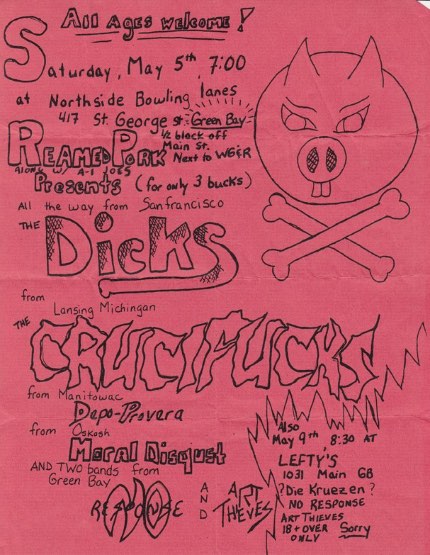 All Ages Welcome!
Saturday, May 5th, 7:00
at Northside Bowling lanes
417 St. George St. Green Bay
1/2 block off
Main St.
Next to WG&R
Reamed Pork
Along w/ A-1 Joes
Presents (for only 3 bucks)
All the way from Sanfrancisco
THE Dicks
from
Lansing Michingan
THE CRUCIFUCKS
from Manitowac
Depo-Provera
from Oskosh
Moral Disgust
AND TWO bands from
Green Bay
RESPONSE
AND
ART THIEVES
Also
May 9th 8:30 AT
LEFTY'S
1031 Main GB
?Die Kruezen?
NO RESPONSE
ART THIEVES
18 + OVER Sorry
ONLY